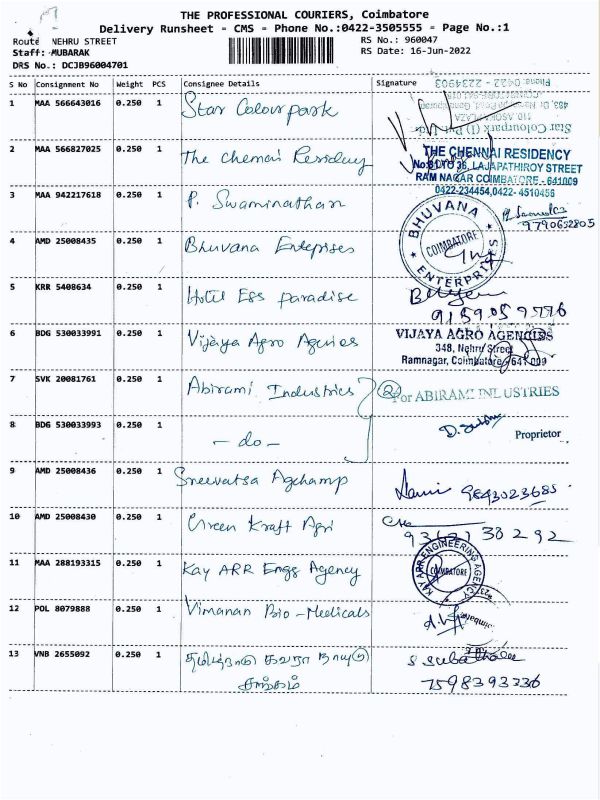 THE PROFESSIONAL COURIERS, Coimbatore
Delivery Runsheet - CMS - Phone No.:0422-3505555 - Page No.:1
Route NEHRU STREET
RS No.: 960047
Staff: MUBARAK
RS Date: 16-Jun-2022
DRS No.: DCJB96004701
S No Consignment No Weight PCS Consignee Details Signature
Phone: 0422 - 2234903
110, ASOKA PLAZA
Star Colourpark (I) Pvt. Ltd.
1 MAA 566643016 0.250 1 Star Colourpark
2 MAA 566827025 0.250 1 The Chennai Residency
THE CHENNAI RESIDENCY
LAJAPATHIROY STREET
RAM NAGAR COIMBATORE - 641009
0422-234454,0422- 4510456
3 MAA 942217618 0.250 1 P. Swaminathan
9790652805
4 AMD 25008435 0.250 1 Bhuvana Enteprises
BHUVANA ENTERPRISES
COIMBATORE
5 KRR 5408634 0.250 1 Hotel Ess paradise
9159059776
6 BDG 530033991 0.250 1 Vijaya Agro Agencies
VIJAYA AGRO AGENCIES
348, Nehru Street
Ramnagar, Coimbatore - 641 009
7 SVK 20081761 0.250 1 Abirami Industries
2 For ABIRAMI INDUSTRIES
8 BDG 530033993 0.250 1 - do -
Proprietor
9 AMD 25008436 0.250 1 Sreevatsa Agchamp
9843023685
10 AMD 25008430 0.250 1 Green Kraft Agri
30292
11 MAA 288193315 0.250 1 Kay ARR Engg Agency
KAY ARR ENGINEERING AGENCY
COIMBATORE
12 POL 8079888 0.250 1 Vimanan Bio-Medicals
13 VNB 2655092 0.250 1 தமிழ்நாடு கவரா நாயுடு
சங்கம்
7598393336